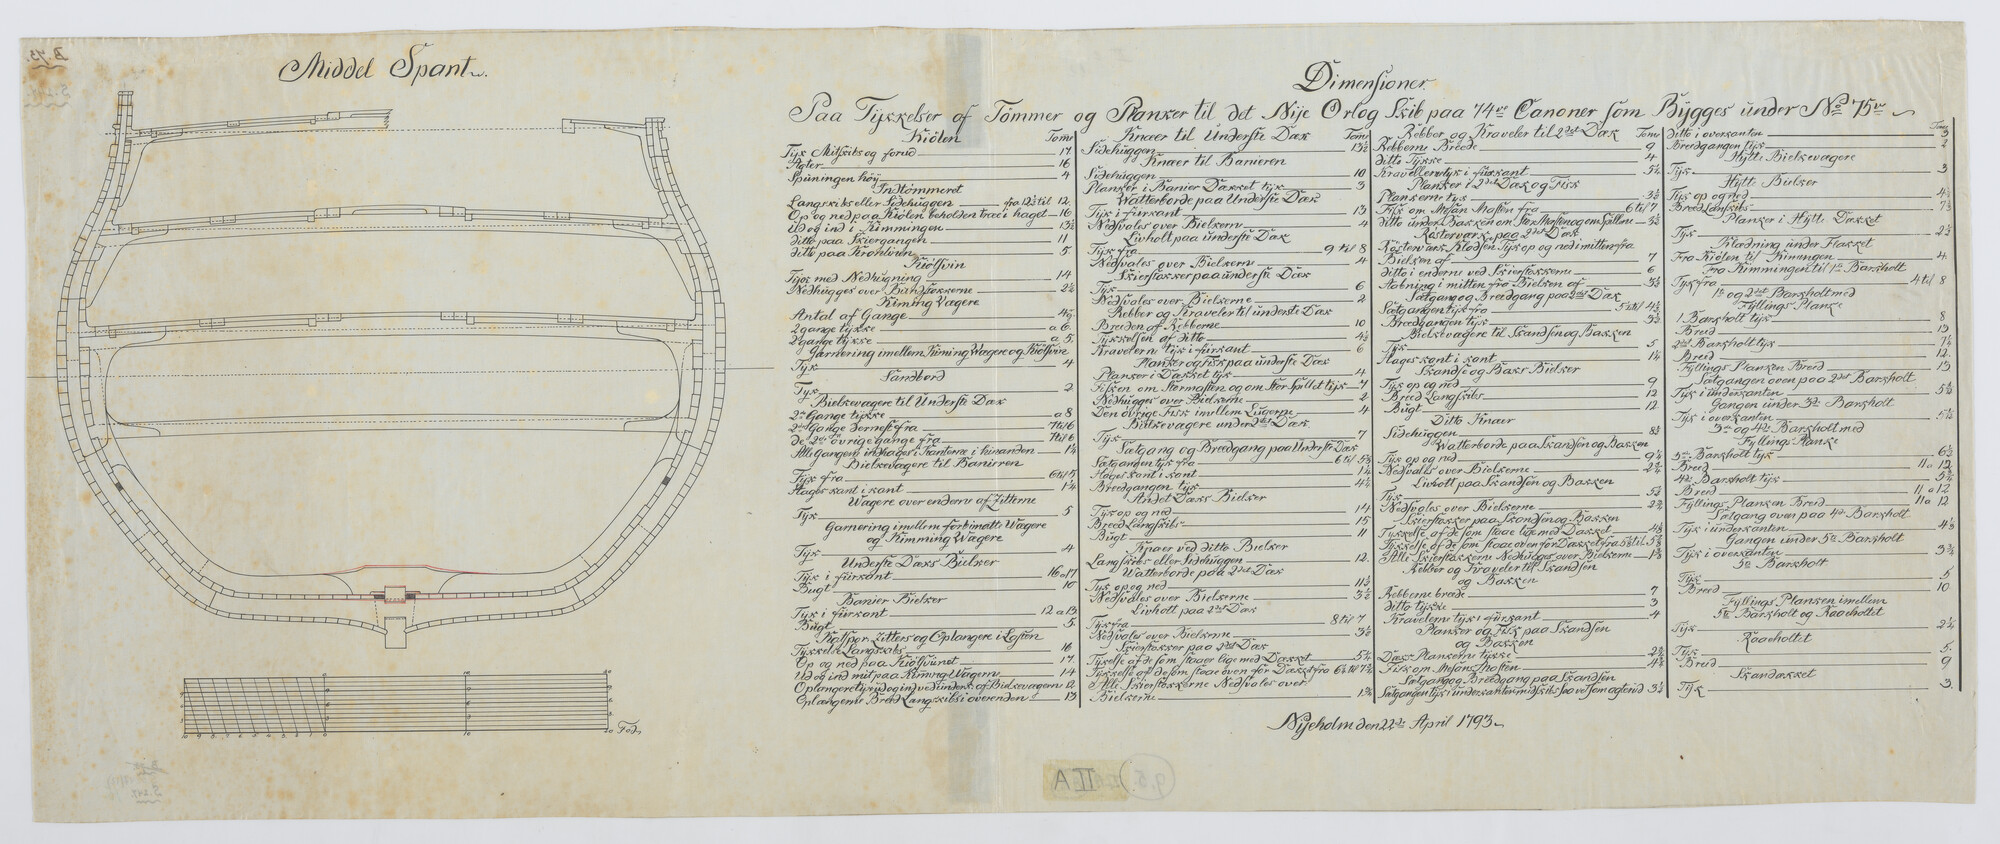 Middel Spant
Dimensioner
Paa Tÿkkelser af Tömmer og Planker til det Nÿe Orlog Skib paa 74ve Canoner som Bÿgges under No 75ve
Kiölen Tom
Tÿk Mitskibs og forud 17
Agter 16
Spuningen höÿ 4
Indtömmeret
Langskibs eller Sidehuggen fra 12½ til 12
Op og ned paa Kiölen beholden træe i haget 16
Ud og ind i Kimmingen 13½
ditto paa Skiergangen 11
ditto paa Kronlinien 5
Kiölsvin
Tÿk med Nedhugning 14
Nedhugges over Bandstokkerne 2½
Kiming Vagere
Antal af Gange 4
2 gange tÿkke a 6
2 gange tÿkke a 5
Garnering imellem Kiming Vagere og Kiölsvin
Tÿk 4
Sandbord
Tÿk 2
Bielkevagere til Underste Dæk
2de Gange tÿkke a 8
2de Gange dernest fra 7 til 6
de 2de övrige gange fra 7 til 6
Alle Gangene indhages i Kanterne i hinanden 1¼
Bielkevagere til Banieren
Tÿk fra 6 til 5
Hages kant i kant 1¼
Vagere over enderne af Zitterne
Tÿk 5
Garnering imellem forbemälte Vagere
og Kimming Vagere
Tÿk 4
Underste Dæks Bielker
Tÿk i fiirkant 16 a 17
Bugt 10
Banier Bielker
Tÿk i fiirkant 12 a 13
Bugt 5
Katspor Zitters og Oplangere i Losten
Tÿkkels Langskibs 16
Op og ned paa Kiölsvinet 17
Ud og ind mit paa Kimingt Vagern 14
Oplangere tÿk ud og ind ved underk: af Bielkevagern 12
Oplangerne Breed Langskibs i overenden 13
Knæer til Underste Dæk Tom
Sidehuggen 13½
Knæer til Banieren
Sidehuggen 10
Planker i Banier Dækket tÿk 3
Watterborde paa Underste Dæk
Tÿk i fiirkant 13
Nedsvales over Bielkern 4
Livholt paa underste Dæk
Tÿk fra 9 til 8
Nedsvales over Bielkerne 4
Skierstokker paa underste Dæk
Tÿk 6
Nedsvales over Bielkerne 2
Rebber og Kraveler til underste Dæk
Breeden af Rebberne 10
Tÿkkelsen af ditto 4½
Kravelern tÿk i fiirkant 6
Planker og Fisk paa underste Dæk
Planker i Dækket tÿk 4
Fisken om Stormasten og om Stor Spillet tÿk 7
Nedhugges over Bielkerne 2
Den övrige Fisk imellem Lugerne 4
Bielkevagere under 2det Dæk
Tÿk 7
Sætgang og Breedgang paa Underste Dæk
Sætgangen tÿk fra 6 til 5½
Hages kant i kant 1¼
Breedgangen tÿk 4½
Andet Dæks Bielker
Tÿk op og ned 14
Breed Langskibs 15
Bugt 11
Knæer ved ditto Bielker
Langskibs eller Sidehuggen 12
Watterborde paa 2det Dæk
Tÿk op og ned 11½
Nedsvales over Bielkerne 3½
Livholt paa 2det Dæk
Tÿk fra 8 til 7
Nedsvales over Bielkerne 3½
Skierstokker paa 2det Dæk
Tÿkelse af de som staaer lige med Dækket 5¼
Tÿkkelse af de som staae oven for Dæk fra 6½ til 7½
Alle Skierstokkerne Nedsvales over
Bielkerne 1¾
Rebber og Kraveler til 2det Dæk Tom
Rebberne Brede 9
ditto Tÿkke 4
Kravellerne tÿk i fiirkant 5¼
Planker i 2det Dæk og Fisk
Plankerne tÿk 3½
Fisk om Mesan Masten fra 6 til 7
Ditto under Bakken om For Masten og om Spillene 5½
Rösterværk paa 2det Dæk
Rösterværk Klodsen Tÿk op og ned i mitten fra
Bielken af 7
ditto i enderne ved Skierstokkerne 6
Aabning i mitten fra Bielken af 3½
Sætgang og Breedgang paa 2det Dæk
Sætgangen tÿk fra 5 til 4½
Breedgangen tÿk 3½
Bielkevagere til Skandsen og Bakken
Tÿk 5
Hages kant i kant 1¼
Skandse og Baks Bielker
Tÿk op og ned 9
Breed Langskibs 12
Bugt 12
Ditto Knæer
Sidehuggen 8½
Watterborde paa Skandsen og Bakken
Tÿk op og ned 9½
Nedsvales over Bielkerne 2¾
Livholt paa Skandsen og Bakken
Tÿk 5½
Nedsvales over Bielkerne 2¾
Skierstokker paa Skandsen og Bakken
Tÿkkelse af de som staae lige med Dækket 4½
Tÿkkelse af de som staae oven for Dækket fra 5½ til 5¾
Alle Skierstokkerne Nedhugges over Bielkern 1⅜
Rebber og Kraveler til Skandsen
og Bakken
Rebberne brede 7
ditto tÿkke 3
Kravelern tÿk i fiirkant 4
Planker og Fisk paa Skandsen
og Bakken
Dæks Plankerne tÿkke 2¾
Fisk om Mesans Masten 4½
Sætgang og Breedgang paa Skandsen
Sætgangen tÿk i underkanten midskibs saavel som agterud 3¼
ditto i overkanten 3
Breedgangen tÿk 2
Hÿtte Bielkevagere
Tÿk 3
Hÿtte Bielker
Tÿk op og ned 4½
Breed Langskibs 7½
Planker i Hÿtte Dækket
Tÿk 2½
Klædning under Flakket
Fra Kiölen til Kimingen 4
Fra Kimmingen til 1te Barkholt
Tÿk fra 4 til 8
1te og 2det Barkholt med
Fÿllings Planke
1 Barkholt tÿk 8
Breed 13
2det Barkholt tÿk 7½
Breed 12
Fÿllings Planken Breed 13
Sætgangen oven paa 2det Barkholt
Tÿk i underkanten 5½
Gangen under 3die Barkholt
Tÿk i overkanten 5¼
3die og 4de Barkholt med
Fÿllings Planke
3die Barkholt tÿk 6½
Breed 11 a 12
4de Barkholt tÿk 5¾
Breed 11 a 12
Fÿllings Planken Breed 11 a 12
Sætgang oven paa 4de Barkholt
Tÿk i underkanten 4½
Gangen under 5te Barkholt
Tÿk i overkanten 3¾
5te Barkholt
Tÿk 5
Breed 10
Fÿllings Planken imellem
5te Barkholt og Raaeholtet
Tÿk 2¼
Raaeholtet
Tÿk 5
Breed 9
Skandækket
Tÿk 3
Nÿeholm den 22de April 1793
10 9 8 7 6 5 4 3 2 1 0 10 20 Fod